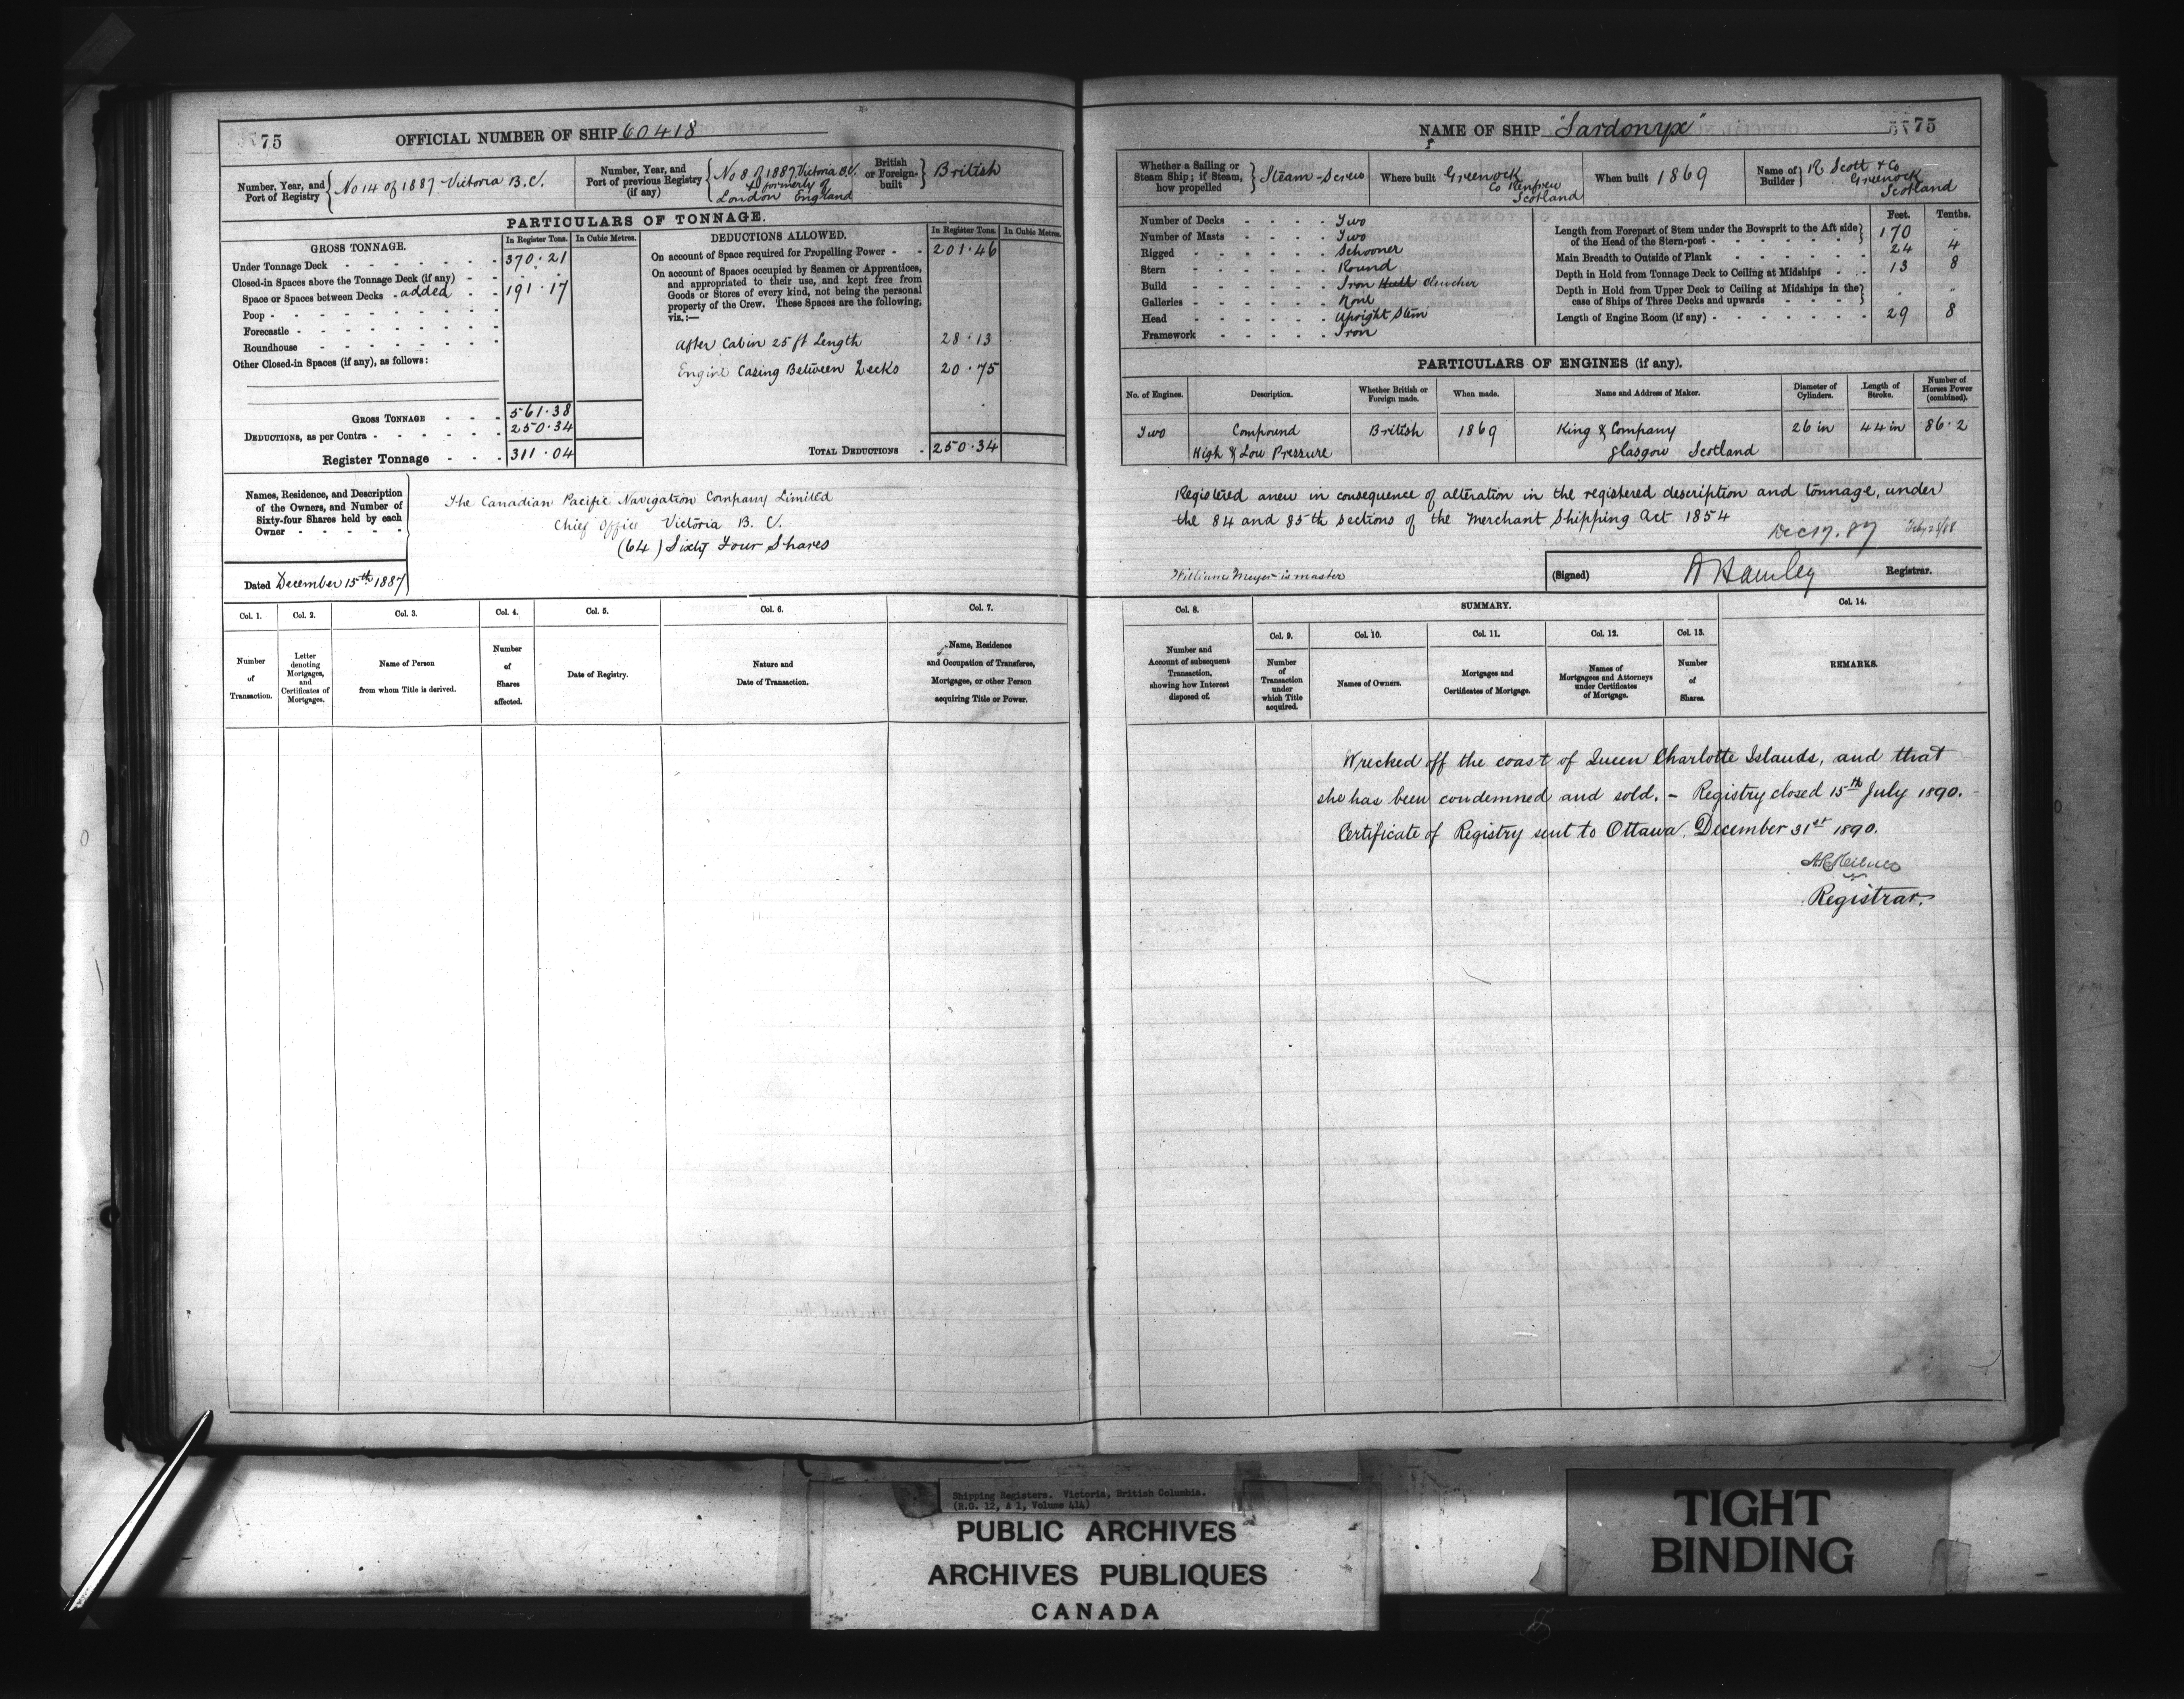 75
OFFICIAL NUMBER OF SHIP 60418
Number, Year, and Port of Registry { No 14 of 1887 Victoria B.C.
Number, Year, and Port of previous Registry (if any) { No 8 of 1887 Victoria B.C. & formerly of London England
British or Foreign-built } British
PARTICULARS OF TONNAGE.
GROSS TONNAGE.
In Register Tons. In Cubic Metres.
Under Tonnage Deck - 370.21
Closed-in Spaces above the Tonnage Deck (if any) -
Space or Spaces between Decks - added - 191.17
Poop -
Forecastle -
Roundhouse -
Other Closed-in Spaces (if any), as follows:
GROSS TONNAGE - 561.38
DEDUCTIONS, as per Contra - 250.34
Register Tonnage - 311.04
DEDUCTIONS ALLOWED.
In Register Tons. In Cubic Metres.
On account of Space required for Propelling Power - 201.46
On account of Spaces occupied by Seamen or Apprentices,
and appropriated to their use, and kept free from
Goods or Stores of every kind, not being the personal
property of the Crew. These Spaces are the following,
viz.:—
After Cabin 25 ft Length 28.13
Engine Casing Between Decks 20.75
TOTAL DEDUCTIONS - 250.34
Names, Residence, and Description
of the Owners, and Number of
Sixty-four Shares held by each
Owner -
The Canadian Pacific Navigation Company Limited
Chief Office Victoria B. C.
(64) Sixty Four Shares
Dated December 15th 1887
Col. 1. Col. 2. Col. 3. Col. 4. Col. 5. Col. 6. Col. 7.
Number of Transaction.
Letter denoting Mortgages, and Certificates of Mortgages.
Name of Person from whom Title is derived.
Number of Shares affected.
Date of Registry.
Nature and Date of Transaction.
Name, Residence and Occupation of Transferee, Mortgagee, or other Person acquiring Title or Power.
NAME OF SHIP "Sardonyx"
75
Whether a Sailing or Steam Ship; if Steam, how propelled } Steam-Screw
Where built Greenock Co Renfrew Scotland
When built 1869
Name of Builder } R Scott & Co Greenock Scotland
Number of Decks - Two
Number of Masts - Two
Rigged - Schooner
Stern - Round
Build - Iron Hull Clencher
Galleries - None
Head - Upright Stem
Framework - Iron
Feet. Tenths.
Length from Forepart of Stem under the Bowsprit to the Aft side of the Head of the Stern-post - 170
Main Breadth to Outside of Plank - 24 4
Depth in Hold from Tonnage Deck to Ceiling at Midships - 13 8
Depth in Hold from Upper Deck to Ceiling at Midships in the case of Ships of Three Decks and upwards -
Length of Engine Room (if any) - 29 8
PARTICULARS OF ENGINES (if any).
No. of Engines. Description. Whether British or Foreign made. When made. Name and Address of Maker. Diameter of Cylinders. Length of Stroke. Number of Horses Power (combined).
Two Compound British 1869 King & Company 26 in 44 in 86.2
High & Low Pressure Glasgow Scotland
Registered anew in consequence of alteration in the registered description and tonnage, under
the 84 and 85th sections of the Merchant Shipping Act 1854
Dec 17. 87
William Meyer is master
(Signed) Hamley Registrar.
Col. 8. SUMMARY. Col. 14.
Col. 9. Col. 10. Col. 11. Col. 12. Col. 13.
Number and Account of subsequent Transaction, showing how Interest disposed of.
Number of Transaction under which Title acquired.
Names of Owners.
Mortgages and Certificates of Mortgage.
Names of Mortgagees and Attorneys under Certificates of Mortgage.
Number of Shares.
REMARKS.
Wrecked off the coast of Queen Charlotte Islands, and that
she has been condemned and sold. - Registry closed 15th July 1890.
Certificate of Registry sent to Ottawa, December 31st 1890.
Registrar.
Shipping Registers. Victoria, British Columbia.
(R.G. 12, A 1, Volume 414)
PUBLIC ARCHIVES
ARCHIVES PUBLIQUES
CANADA
TIGHT
BINDING